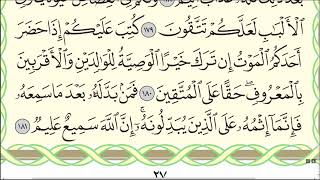 ٱلْأَلْبَٰبِ لَعَلَّكُمْ تَتَّقُونَ ١٧٩ كُتِبَ عَلَيْكُمْ إِذَا حَضَرَ
أَحَدَكُمُ ٱلْمَوْتُ إِن تَرَكَ خَيْرًا ٱلْوَصِيَّةُ لِلْوَٰلِدَيْنِ وَٱلْأَقْرَبِينَ
بِٱلْمَعْرُوفِ ۖ حَقًّا عَلَى ٱلْمُتَّقِينَ ١٨٠ فَمَنۢ بَدَّلَهُۥ بَعْدَ مَا سَمِعَهُۥ
فَإِنَّمَآ إِثْمُهُۥ عَلَى ٱلَّذِينَ يُبَدِّلُونَهُۥٓ ۚ إِنَّ ٱللَّهَ سَمِيعٌ عَلِيمٌ ١٨١
٢٧